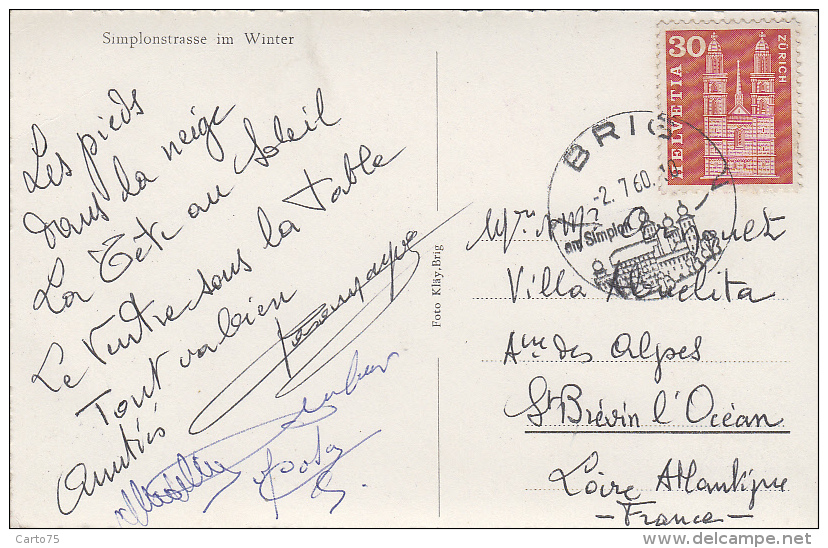 Simplonstrasse im Winter
Les pieds
dans la neige
La Tête au Soleil
Le Ventre sous la Table
Tout va bien
Amitiés
Foto Kläy, Brig
30
HELVETIA
ZÜRICH
BRIG
-2. 7 60.
am Simplon
Villa
Aue des Alpes
St Brévin l'Océan
Loire Atlantique
- France -
Carto75
delcampe.net